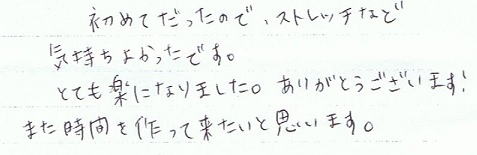 初めてだったので、ストレッチなど
気持ちよかったです。
とても楽になりました。ありがとうございます!
また時間を作って来たいと思います。